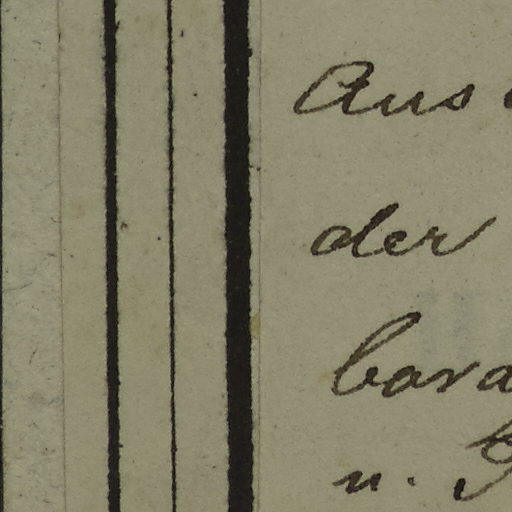 Aus
der
bara
u.